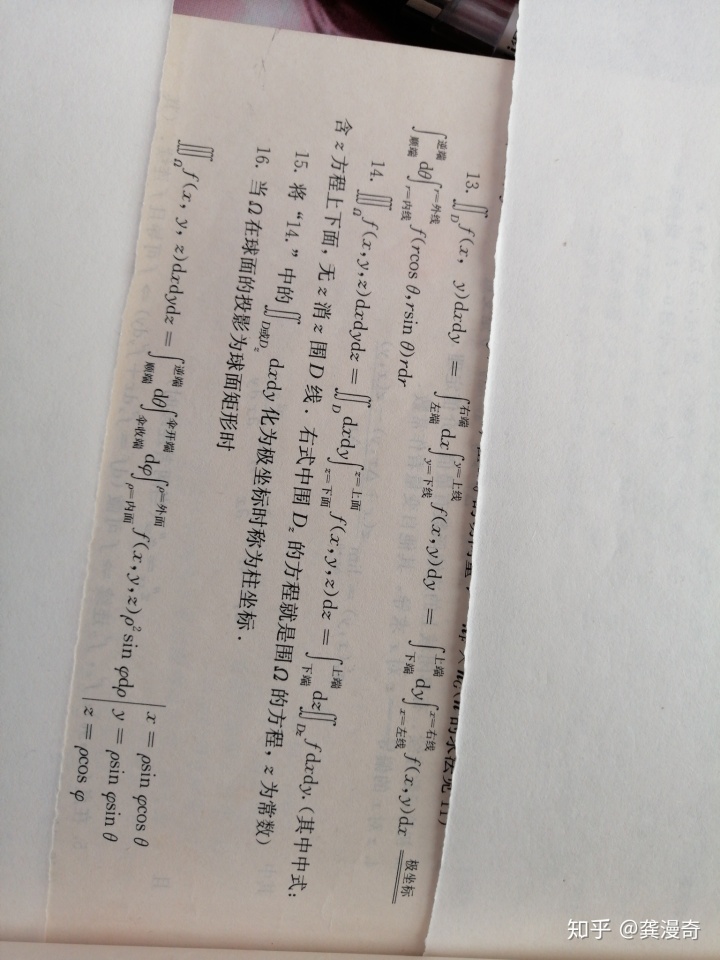 13. ∬_D f(x, y)dxdy = ∫_{左端}^{右端} dx∫_{y=下线}^{y=上线} f(x,y)dy = ∫_{下端}^{上端} dy∫_{x=左线}^{x=右线} f(x,y)dx 极坐标
∫_{顺端}^{逆端} dθ∫_{r=内线}^{r=外线} f(rcos θ,rsin θ)rdr
14. ∭_Ω f(x,y,z)dxdydz = ∬_D dxdy∫_{z=下面}^{z=上面} f(x,y,z)dz = ∫_{下端}^{上端} dz∬_{Dz} fdxdy.(其中中式:
含 z 方程上下面,无 z 消 z 围 D 线. 右式中围 D_z 的方程就是围 Ω 的方程, z 为常数)
15. 将“14.”中的∬_{D或D_z} dxdy 化为极坐标时称为柱坐标.
16. 当 Ω 在球面的投影为球面矩形时
∭_Ω f(x, y, z)dxdydz = ∫_{顺端}^{逆端} dθ∫_{伞收端}^{伞开端} dφ∫_{ρ=内面}^{ρ=外面} f(x,y,z)ρ² sin φdρ | x = ρsin φcos θ
y = ρsin φsin θ
z = ρcos φ
知乎 @龚漫奇